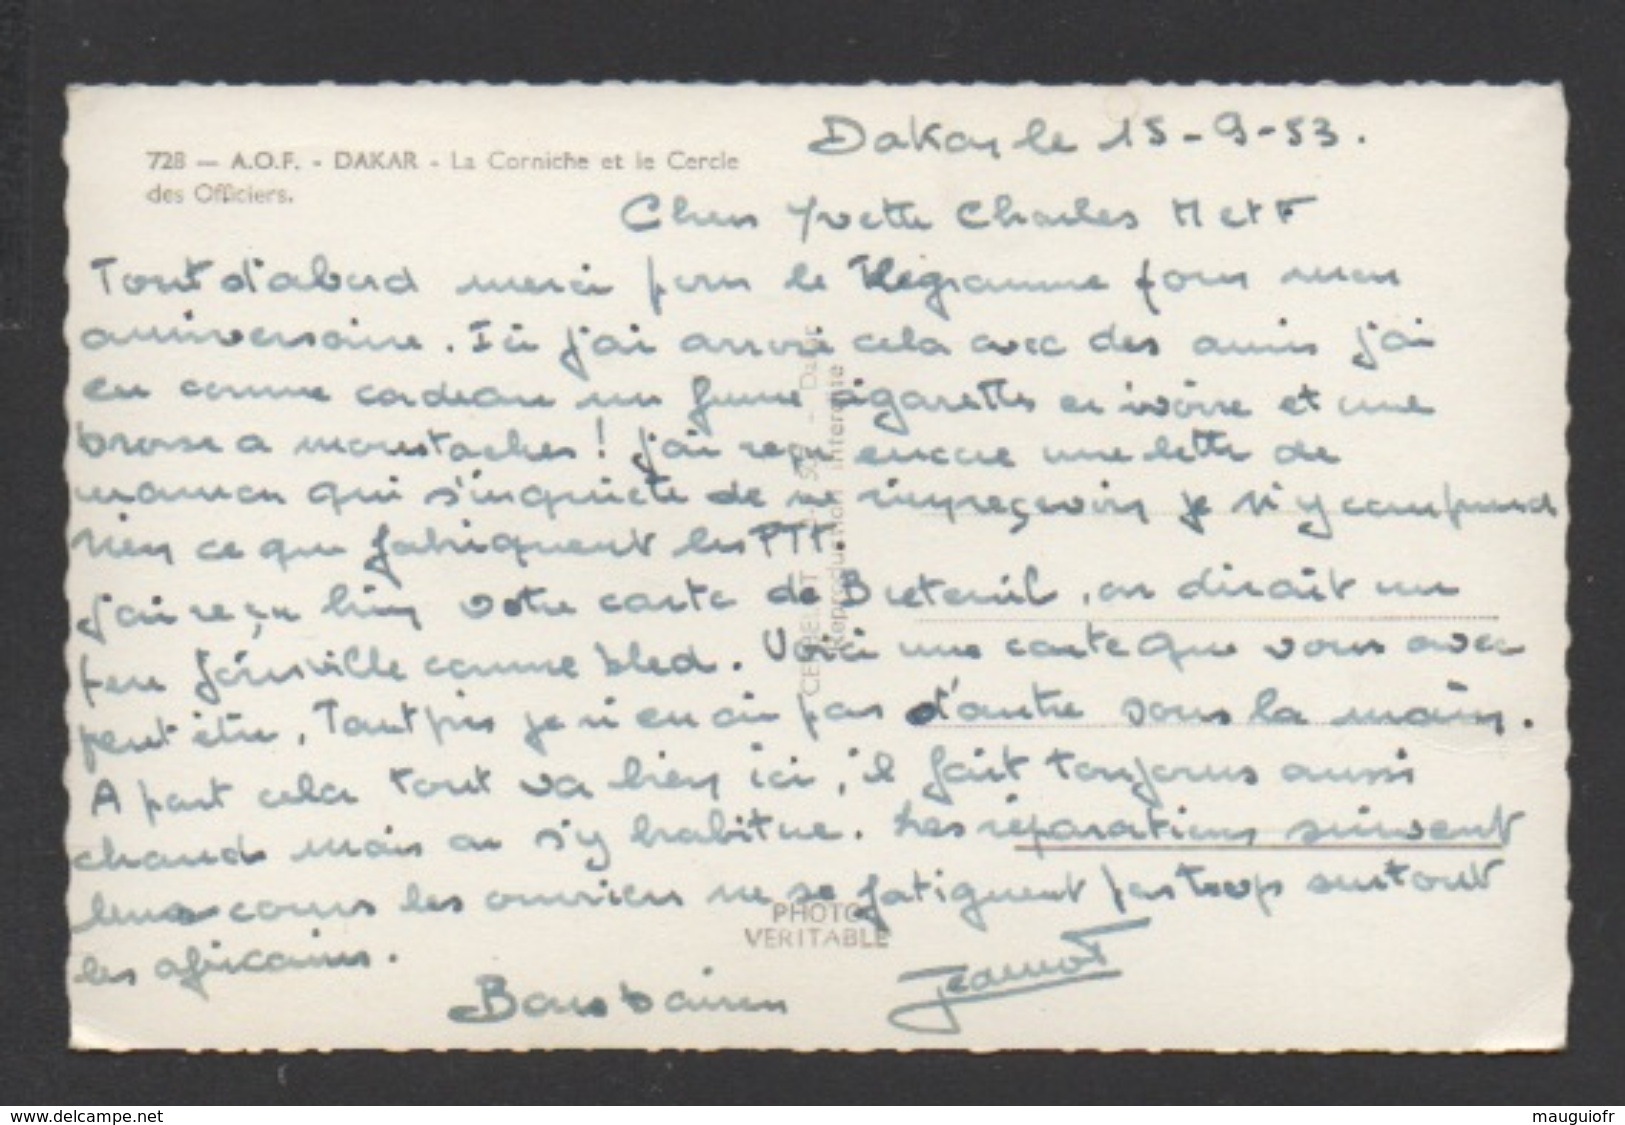 Dakar le 15-9-53.
728 — A.O.F. - DAKAR - La Corniche et le Cercle
des Officiers.
Chers Yvette Charles M et F
Tout d'abord merci pour le télégramme pour mon
anniversaire. Ici j'ai arrosé cela avec des amis j'ai
eu comme cadeau un fume cigarettes en ivoire et une
brosse a moustaches! j'ai reçu encore une lettre de
maman qui s'inquiète de ne rien reçevoir, je n'y comprend
rien ce que fabriquent les PTT.
j'ai reçu bien votre carte de Breteuil, on dirait un
peu Joinville comme bled. Voici une carte que vous avez
peut être, Tant pis je n'en ai pas d'autre sous la main.
A part cela tout va bien ici, il fait toujours aussi
chaud mais on s'y habitue. Les réparations suivent
leurs cours les ouvriers ne se fatiguent pas trop surtout
les africains.
Bons baisers Jeannot
Reproduction interdite
PHOTO
VERITABLE
www.delcampe.net
mauguiofr